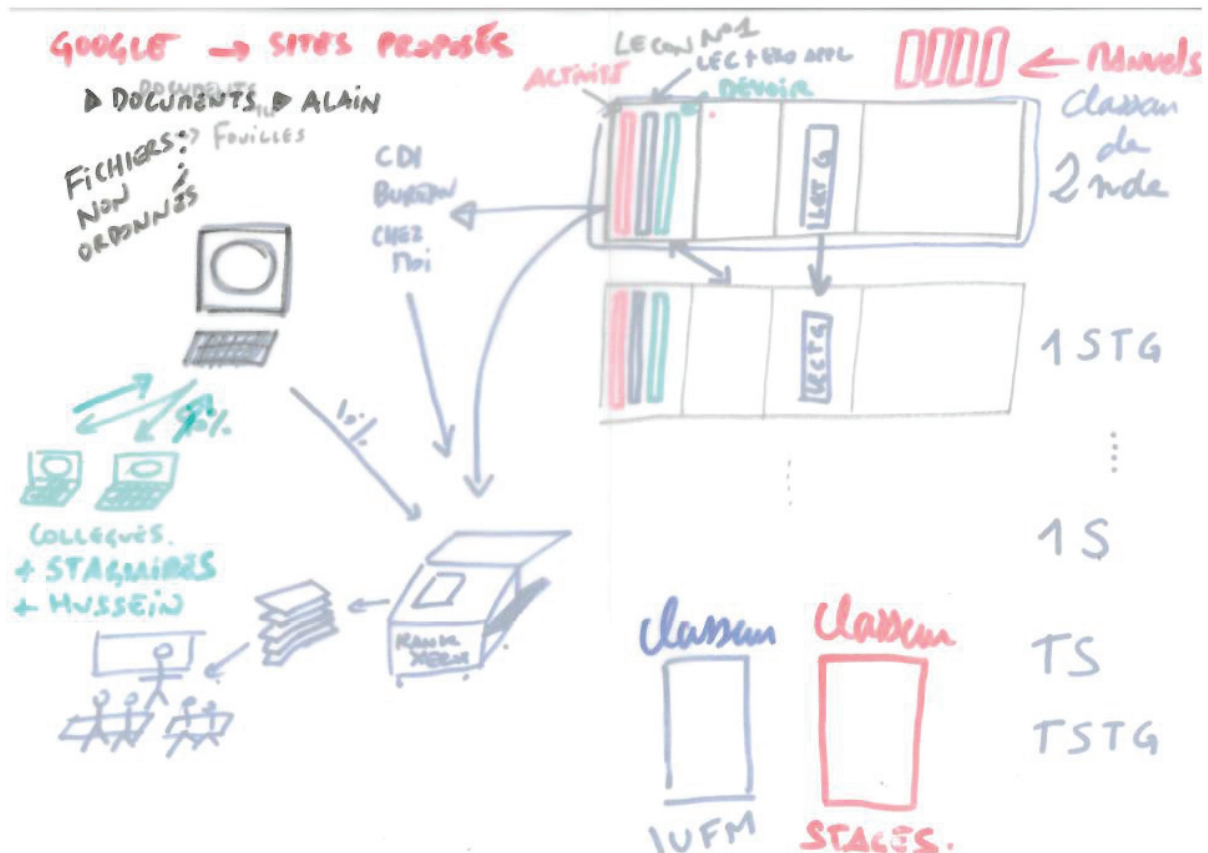 GOOGLE → SITES PROPOSÉS
▶ DOCUMENTS ▶ ALAIN
DOCUMENTS
→ FOUILLES
FICHIERS:
NON
ORDONNÉS
CDI
BUREAU
CHEZ
MOI
LEÇON N°1
LEC + EXO APPL
ACTIVITÉ
DEVOIR
MANUELS
Classeur
de
2nde
LECT G
LECTG
1 STG
10%
90%
COLLEGUES.
+ STAGIAIRES
+ HUSSEIN
RANK
XEROX
1 S
TS
TSTG
Classeur
IUFM
Classeur
STAGES.